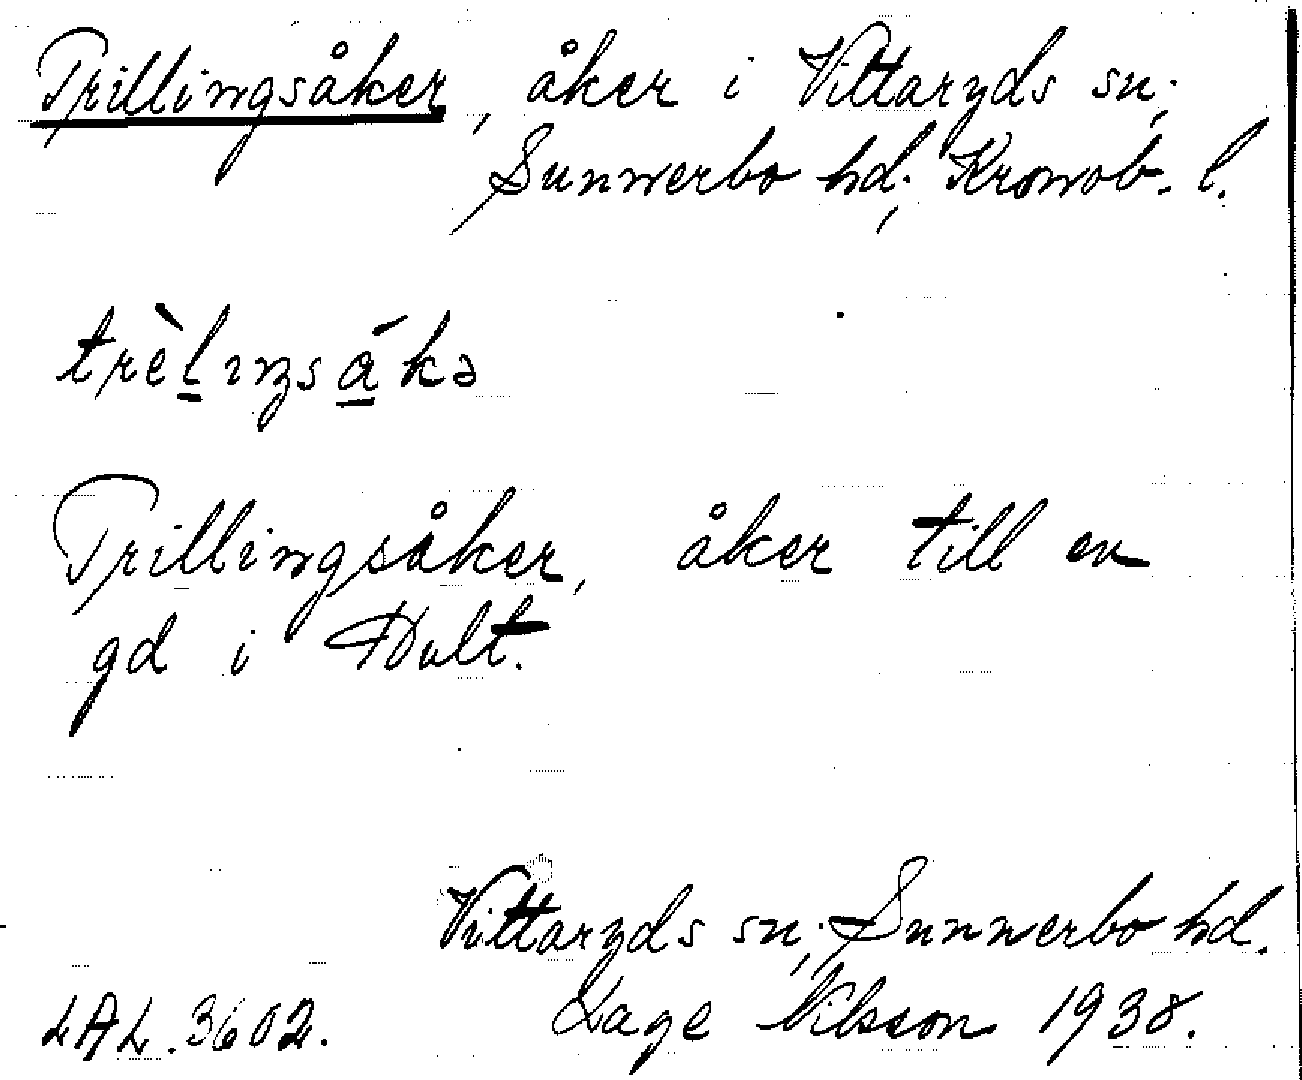 Trillingsåker, åker i Vittaryds sn.,
Sunnerbo hd., Kronob. l.
trèlıŋsákə
Trillingsåker, åker till en
gd i Hult.
Vittaryds sn., Sunnerbo hd.
LAL. 3602. Lage Nilsson 1938.